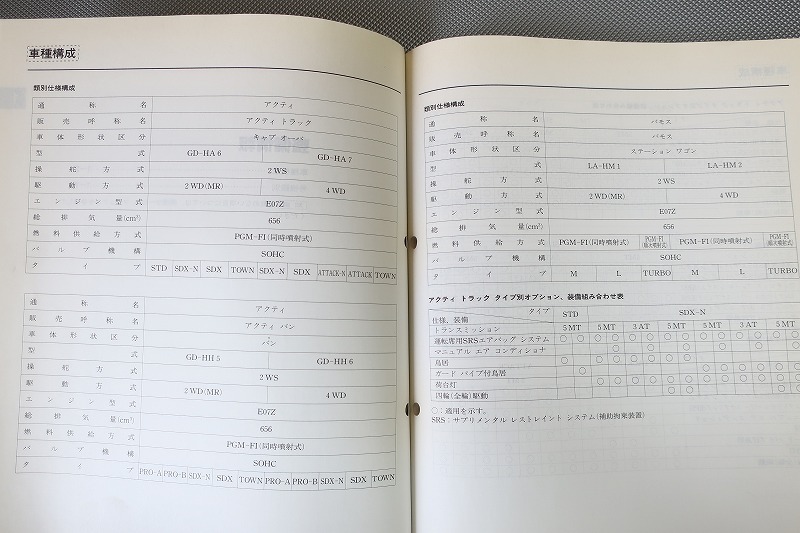 車種構成
類別仕様構成
通称名 アクティ
販売呼称名 アクティ トラック
車体形状区分 キャブ オーバ
型式 GD-HA6 GD-HA7
操舵方式 2WS
駆動方式 2WD(MR) 4WD
エンジン型式 E07Z
総排気量(cm³) 656
燃料供給方式 PGM-FI(同時噴射式)
バルブ機構 SOHC
タイプ STD SDX-N SDX TOWN SDX-N SDX ATTACK-N ATTACK TOWN
通称名 アクティ
販売呼称名 アクティ バン
車体形状区分 バン
型式 GD-HH5 GD-HH6
操舵方式 2WS
駆動方式 2WD(MR) 4WD
エンジン型式 E07Z
総排気量(cm³) 656
燃料供給方式 PGM-FI(同時噴射式)
バルブ機構 SOHC
タイプ PRO-A PRO-B SDX-N SDX TOWN PRO-A PRO-B SDX-N SDX TOWN
類別仕様構成
通称名 バモス
販売呼称名 バモス
車体形状区分 ステーション ワゴン
型式 LA-HM1 LA-HM2
操舵方式 2WS
駆動方式 2WD(MR) 4WD
エンジン型式 E07Z
総排気量(cm³) 656
燃料供給方式 PGM-FI(同時噴射式) PGM-FI(順次噴射式) PGM-FI(同時噴射式) PGM-FI(順次噴射式)
バルブ機構 SOHC
タイプ M L TURBO M L TURBO
アクティ トラック タイプ別オプション、装備組み合わせ表
タイプ STD SDX-N
仕様、装備
トランスミッション 5MT 5MT 3AT 5MT 5MT 3AT 5MT
運転専用SRSエアバッグ システム ○ ○ ○ ○ ○ ○ ○ ○ ○ ○ ○ ○ ○
マニュアル エア コンディショナ
鳥居
ガード パイプ付鳥居
荷台灯
四輪(全輪)駆動
○：適用を示す。
SRS：サプリメンタル レストレイント システム(補助拘束装置)